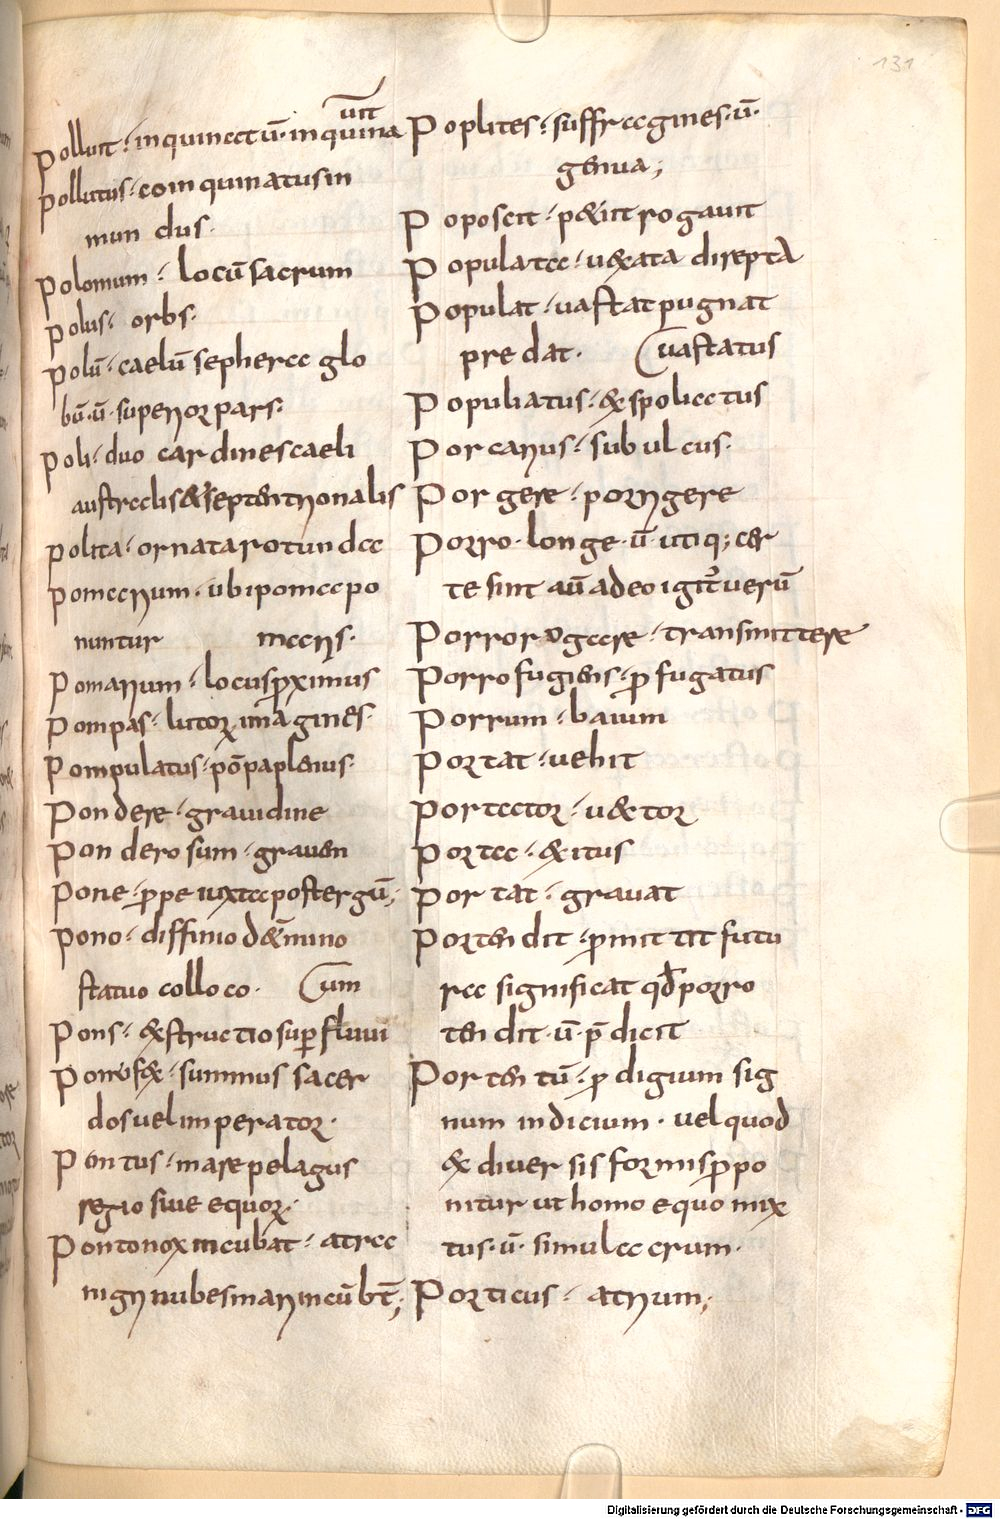 131
uit
Polluit · inquinat ū · inquina
Pollutus · coinquinatus in
mundus ·
Polomum · locū sacrum
Polus · orbs ·
Polū · caelū sephera glo
bū · ū · superior pars ·
Poli · duo cardines caeli
australis & septentrionalis
Polita · ornata rotunda
Pomerium · ubi poma po
nuntur maeris ·
Pomarium · locus proximus
Pompas · lutorum imagines ·
Pompulatus · pōpa plenus ·
Pondere · grauidine
Ponderosum · grauen
Pone · prope iuxta postergū ;
Pono · diffinio d&ermino
statuo colloco ·
um
Pons · &structio super fluui
Pontifex · summus sacer
dos uel imperator ·
Pontus · mare pelagus
regio siue equor ·
Ponto nox incubat · atra
nigri nubes mari incūbt̄ ;
Poplites · suffragines · ū ·
genua ;
Poposcit · p&iit rogauit
Populata · u&ata direpta
Populat · uastat pugnat
predat ·
uastatus
Populiatus · & spoliatus
Porcarius · subulcus ·
Porgere · porrigere
Porro · longe · ū · utiq; cer
te sint aū adeo igit̄ uerū
Porro rogare · transmittere
Porro fugiens · p fugatus
Porrum · baium
Portat · uehit
Portector · uector
Porta · &itus
Portat · grauat
Portendit · pmittit futu
ra significat qđ porro
tendit · ū · p̄dicit
Portentū · pdigium sig
num indicium · uel quod
ex diuersis formis propo
nitur ut homo equo mix
tus · ū · simulacrum ·
Porticus · atrium ;
Digitalisierung gefördert durch die Deutsche Forschungsgemeinschaft - DFG